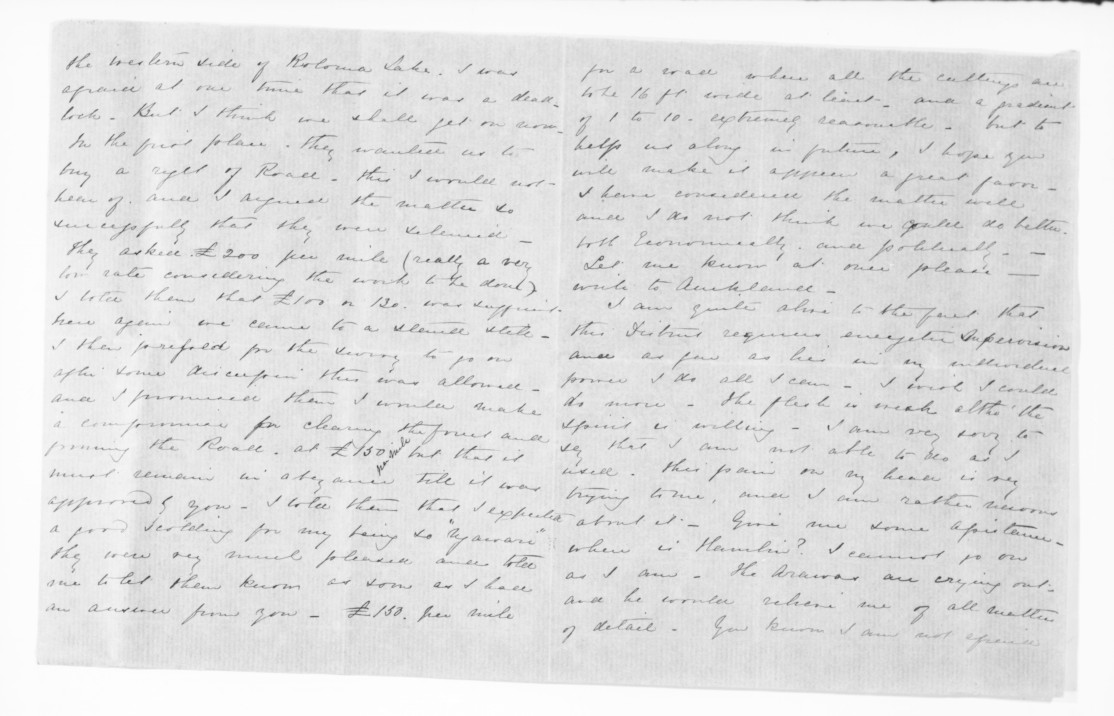 the western side of Rotorua Lake. I was
afraid at one time that it was a dead-
lock. But I think we shall get on now.
In the first place. they wanted us to
buy a right of Road - this I would not
hear of. and I argued the matter so
successfully that they were silenced -
They asked £200 per mile (really a very
low rate considering the work to be done)
I told them that £100 or 120. was sufficient
here again we came to a stand still -
I then proposed for the survey to go on
after some discussion this was allowed -
and I promised them I would make
a compromise for clearing the forest and
forming the Road. at £150 per mile but that it
must remain in abeyance till it was
approved by you - I told them that I expected
a good scolding for my being so "ngawari"
they were very much pleased and told
me to let them know as soon as I had
an answer from you - £150. per mile
for a road where all the cuttings are
to be 16 ft wide at least - and a gradient
of 1 to 10. extremely reasonable - but to
help us along in future, I hope you
will make it appear a great favor -
I have considered the matter well
and I do not think we could do better.
both Economically. and politically. -
Let me know at once please -
write to Auckland -
I am quite alive to the fact that
this District requires energetic Supervision
and as far as lies in my individual
power I do all I can - I wish I could
do more - the flesh is weak altho' the
spirit is willing - I am very sorry to
say that I am not able to do as I
used. this pain on my head is very
trying to me, and I am rather nervous
about it - Give me some assistance -
where is Hamlin? I cannot go on
as I am - the Arawas are crying out -
and he would relieve me of all matters
of detail - You know I am not afraid